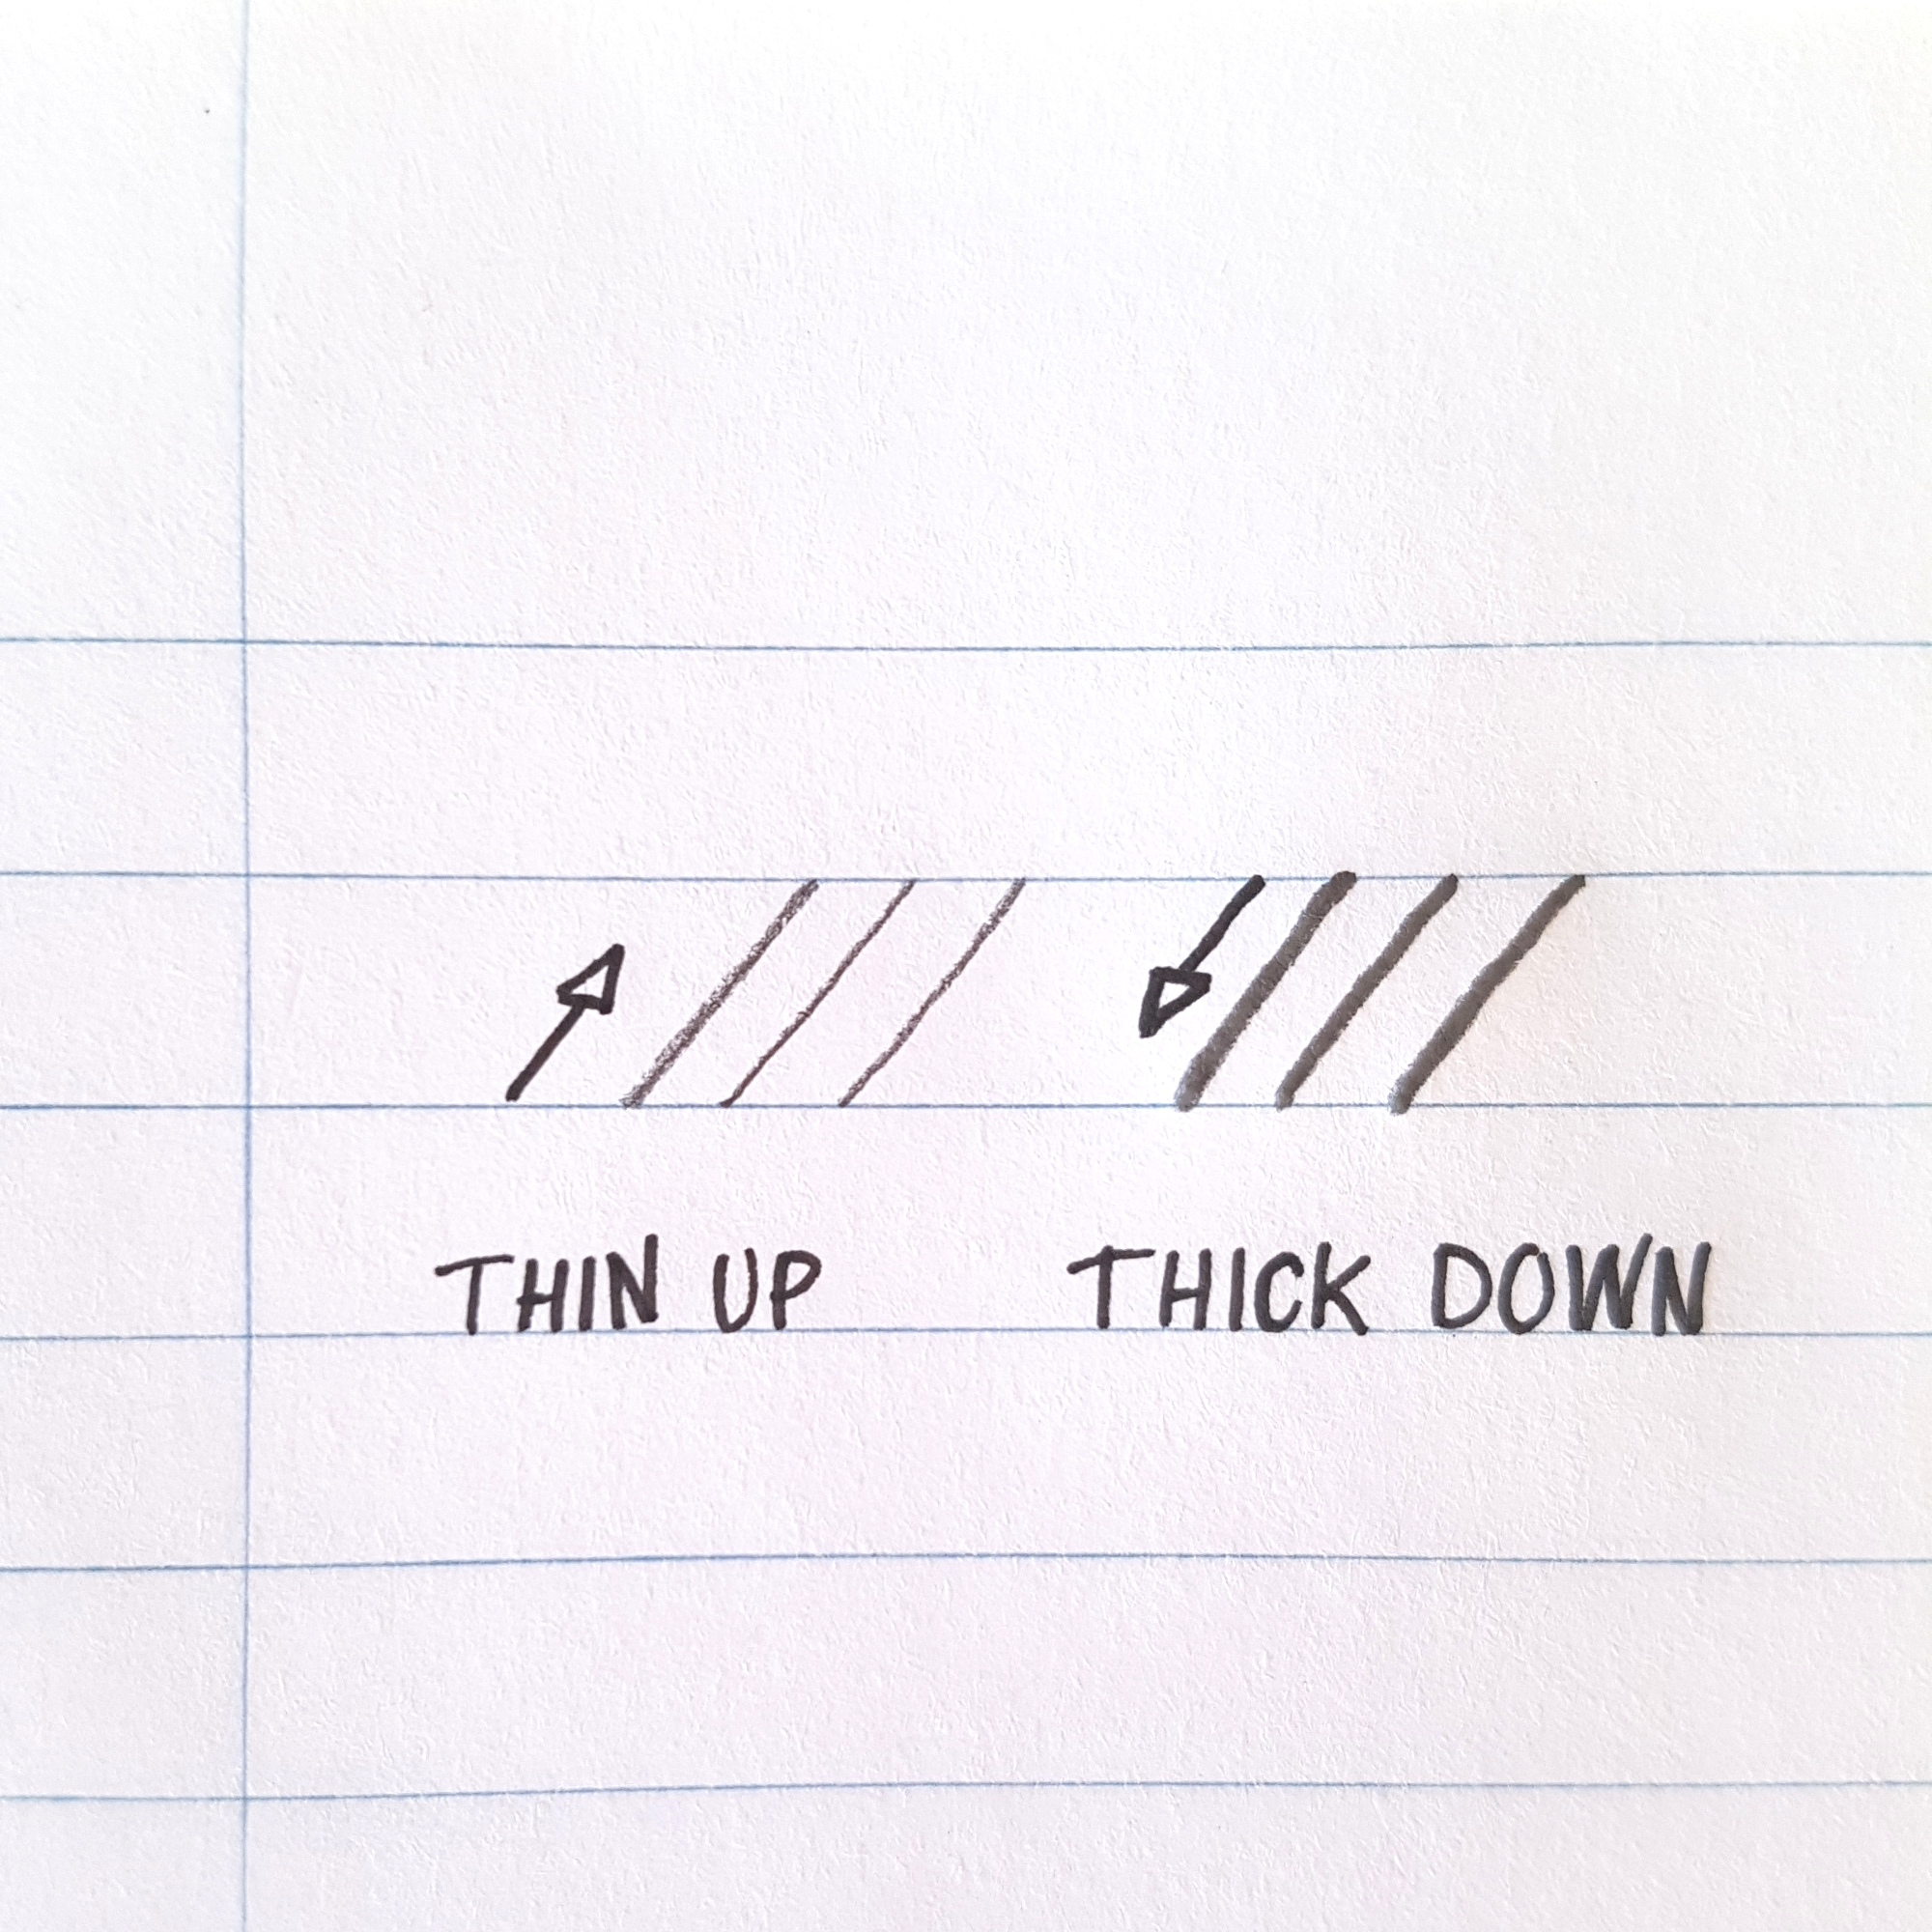 THIN UP THICK DOWN